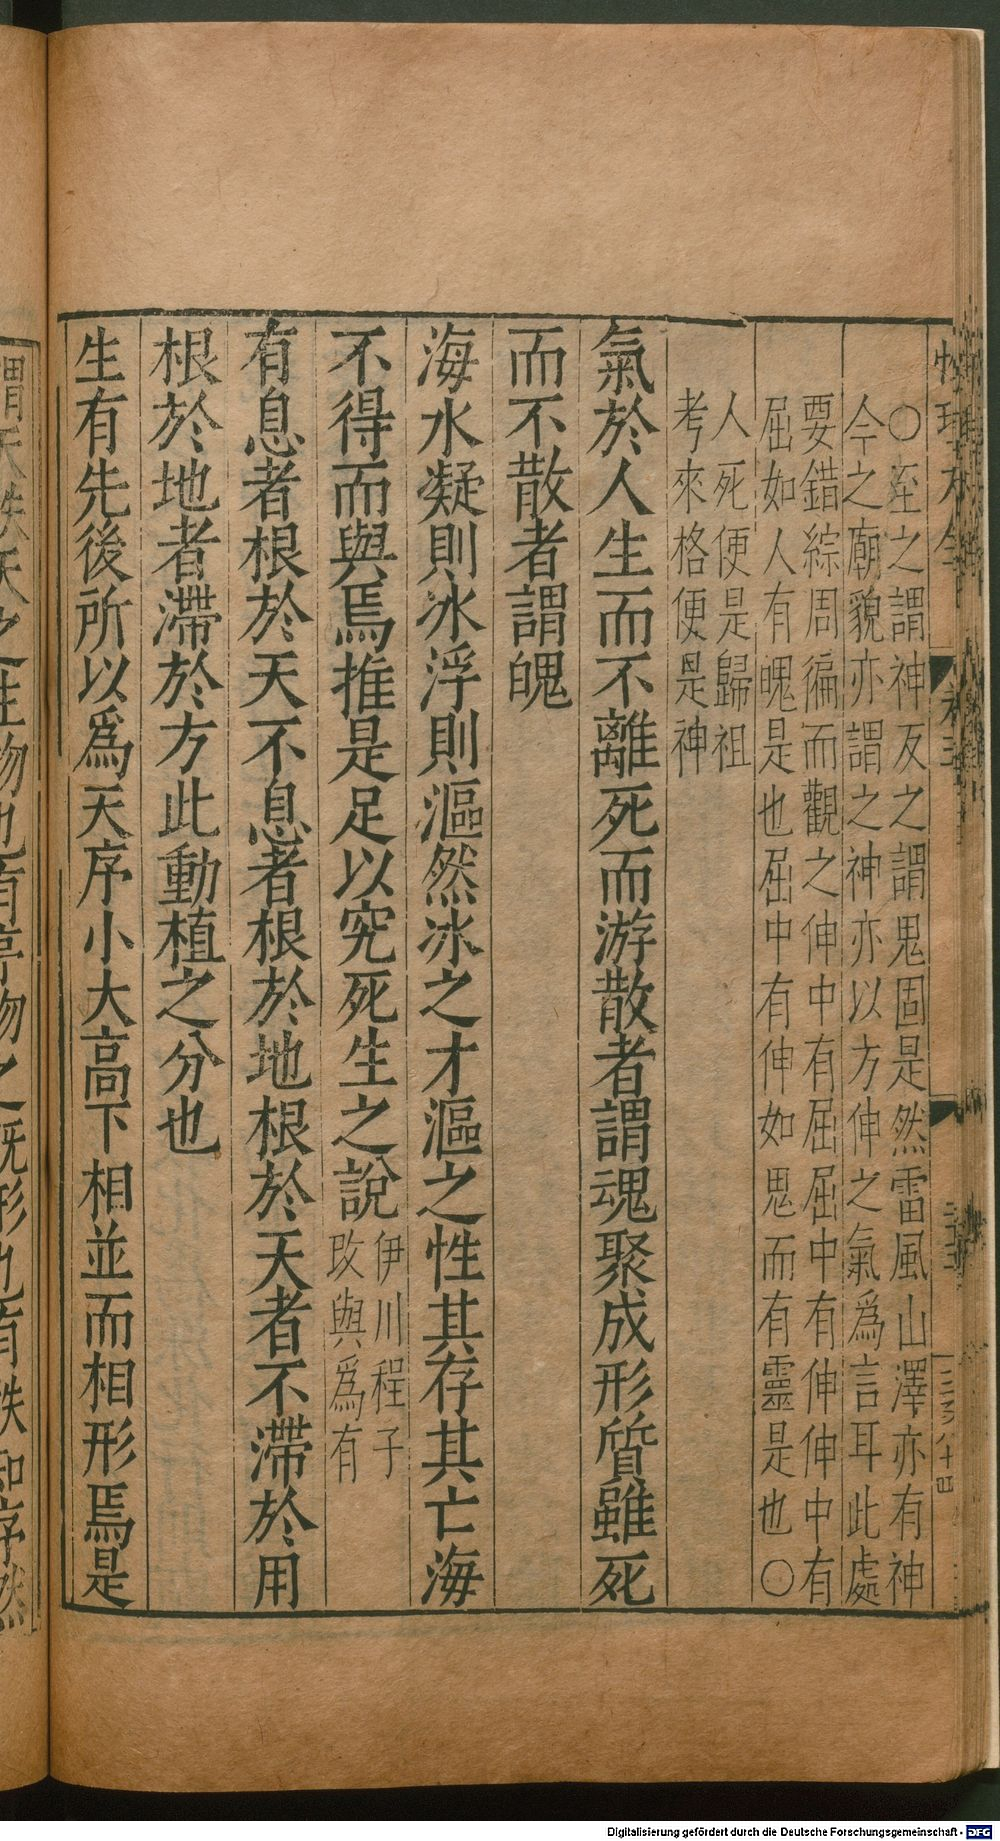 ○至之謂神反之謂鬼固是然雷風山澤亦有神
今之廟貌亦謂之神亦以方伸之氣爲言耳此處
要錯綜周徧而觀之伸中有屈屈中有伸伸中有
屈如人有魄是也屈中有伸如鬼而有靈是也○
人死便是歸祖
考來格便是神
氣於人生而不離死而游散者謂魂聚成形質雖死
而不散者謂魄
海水凝則冰浮則漚然冰之才漚之性其存其亡海
不得而與焉推是足以究死生之說
伊川程子
改與爲有
有息者根於天不息者根於地根於天者不滯於用
根於地者滯於方此動植之分也
生有先後所以爲天序小大高下相並而相形焉是
Digitalisierung gefördert durch die Deutsche Forschungsgemeinschaft - DFG